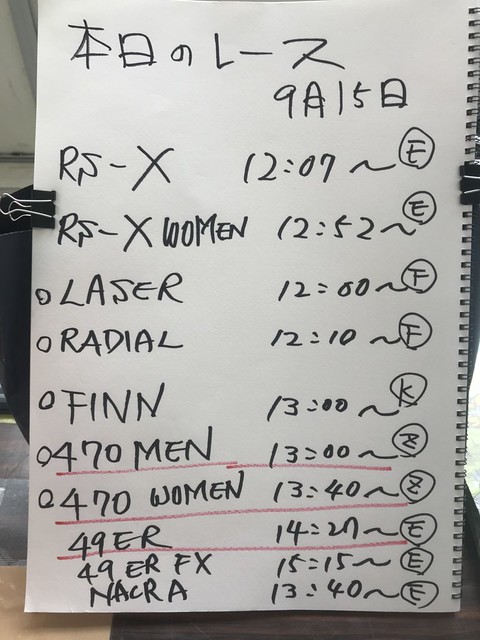 本日のレース
9月15日
RS-X 12:07～ Ⓔ
RS-X WOMEN 12:52～ Ⓔ
○LASER 12:00～ Ⓕ
○RADIAL 12:10～ Ⓕ
○FINN 13:00～ Ⓚ
○470 MEN 13:00～
○470 WOMEN 13:40～ Ⓩ
49ER 14:27～ Ⓔ
49ER FX 15:15～ Ⓔ
NACRA 13:40～